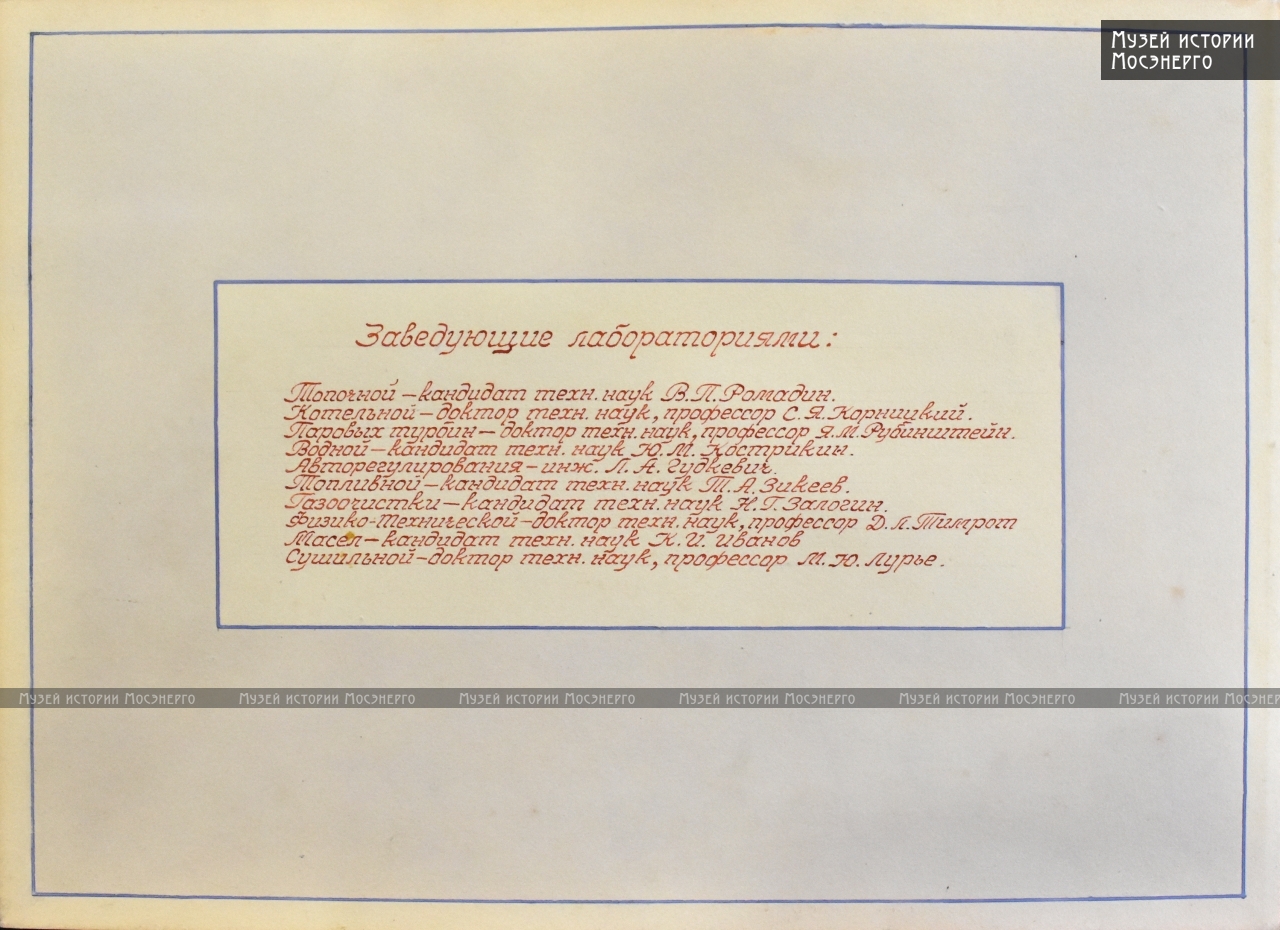 Музей истории
Мосэнерго
Заведующие лабораториями:
Топочной – кандидат техн. наук В. П. Ромадин.
Котельной – доктор техн. наук, профессор С. Я. Корницкий.
Паровых турбин – доктор техн. наук, профессор Я. М. Рубинштейн.
Водной – кандидат техн. наук Ю. М. Кострикин.
Авторегулирования – инж. Л. А. Гудкевич.
Топливной – кандидат техн. наук Т. А. Зикеев.
Газоочистки – кандидат техн. наук Н. Г. Залогин.
Физико-Технической – доктор техн. наук, профессор Д. Л. Тимрот
Масел – кандидат техн. наук К. И. Иванов
Сушильной – доктор техн. наук, профессор М. Ю. Лурье.
Музей истории Мосэнерго Музей истории Мосэнерго Музей истории Мосэнерго Музей истории Мосэнерго Музей истории Мосэнерго Музей истории Мосэнерго